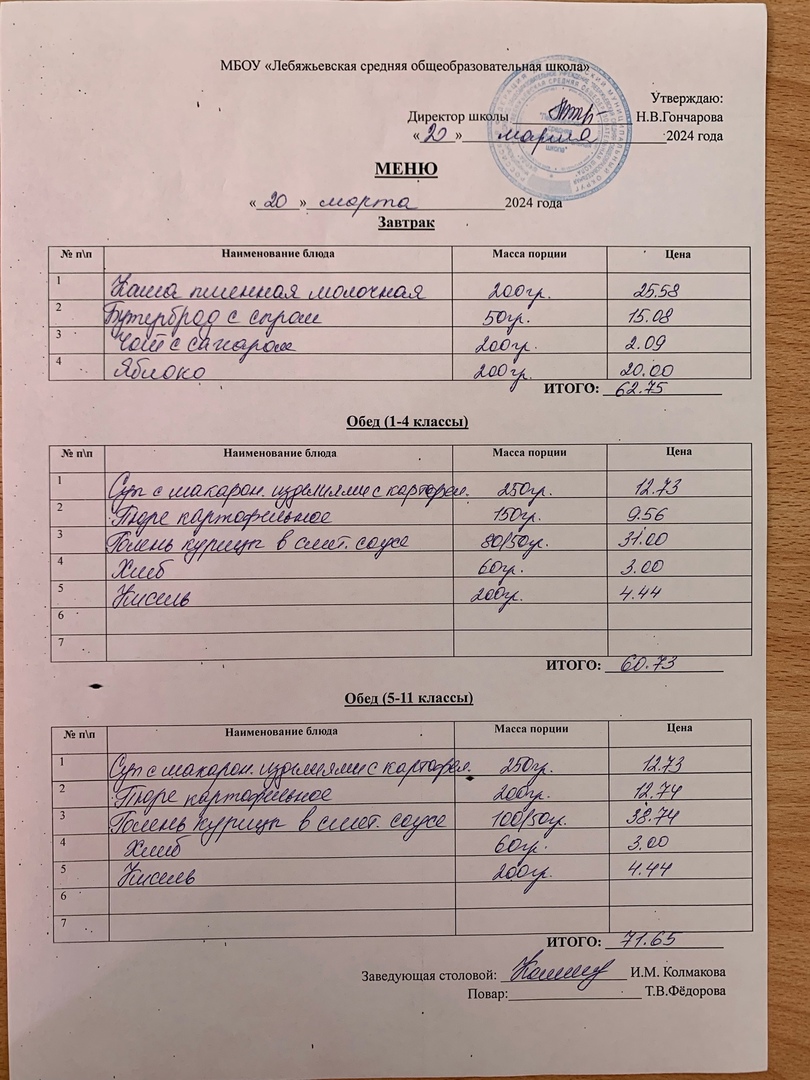 МБОУ «Лебяжьевская средняя общеобразовательная школа»
Утверждаю:
Директор школы Н.В.Гончарова
«20» марта 2024 года
МЕНЮ
«20» марта 2024 года
Завтрак
№ п\п Наименование блюда Масса порции Цена
1 Каша пшенная молочная 200гр. 25.58
2 Бутерброд с сыром 50гр. 15.08
3 Чай с сахаром 200гр. 2.09
4 Яблоко 200гр. 20.00
ИТОГО: 62.75
Обед (1-4 классы)
№ п\п Наименование блюда Масса порции Цена
1 Суп с макарон. изделиями с картофел. 250гр. 12.73
2 Пюре картофельное 150гр. 9.56
3 Голень курицы в смет. соусе 80/50гр. 31.00
4 Хлеб 60гр. 3.00
5 Кисель 200гр. 4.44
6
7
ИТОГО: 60.73
Обед (5-11 классы)
№ п\п Наименование блюда Масса порции Цена
1 Суп с макарон. изделиями с картофел. 250гр. 12.73
2 Пюре картофельное 200гр. 12.74
3 Голень курицы в смет. соусе 100/50гр. 38.74
4 Хлеб 60гр. 3.00
5 Кисель 200гр. 4.44
6
7
ИТОГО: 71.65
Заведующая столовой: И.М. Колмакова
Повар: Т.В.Фёдорова